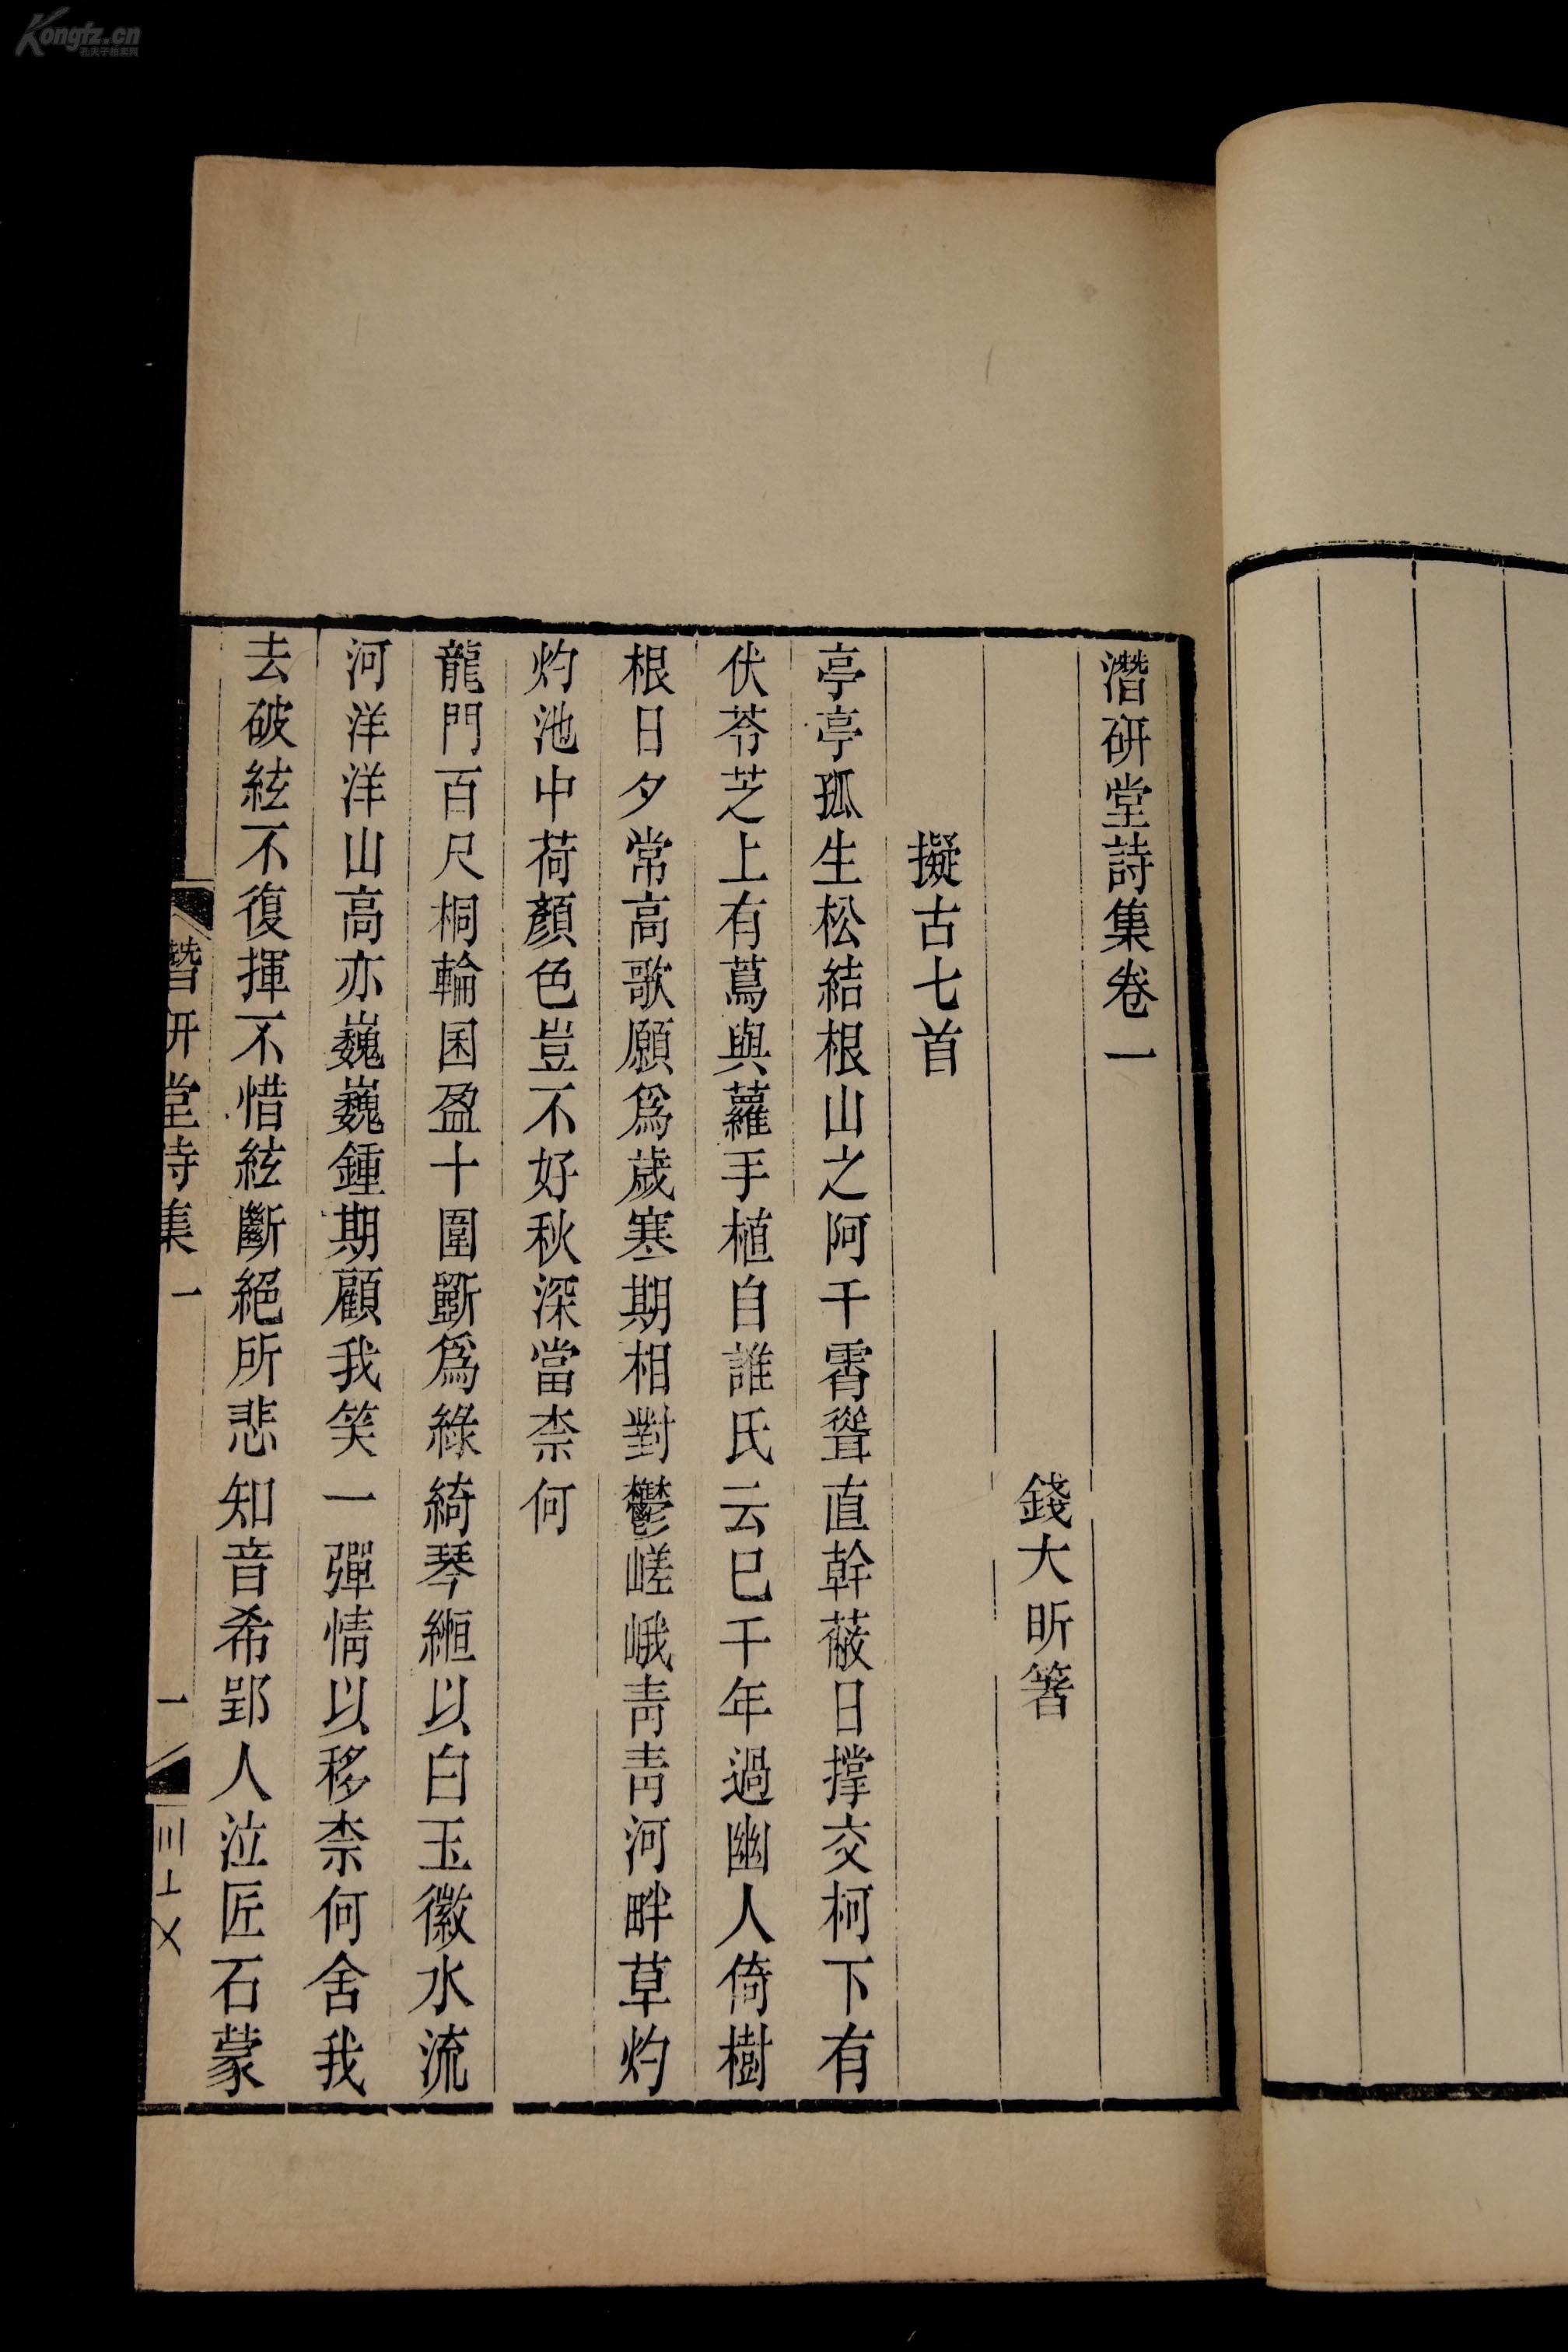 潛研堂詩集卷一
錢大昕箸
擬古七首
亭亭孤生松結根山之阿干霄聳直幹蔽日撐交柯下有
伏苓芝上有蔦與蘿手植自誰氏云已千年過幽人倚樹
根日夕常高歌願爲歲寒期相對鬱嵯峨靑靑河畔草灼
灼池中荷顏色豈不好秋深當柰何
龍門百尺桐輪囷盈十圍斲爲綠綺琴緪以白玉徽水流
河洋洋山高亦巍巍鍾期顧我笑一彈情以移柰何舍我
去破絃不復揮不惜絃斷絕所悲知音希郢人泣匠石蒙
潛研堂詩集一
一
〣〦〤
Kongfz.cn
孔夫子拍卖网